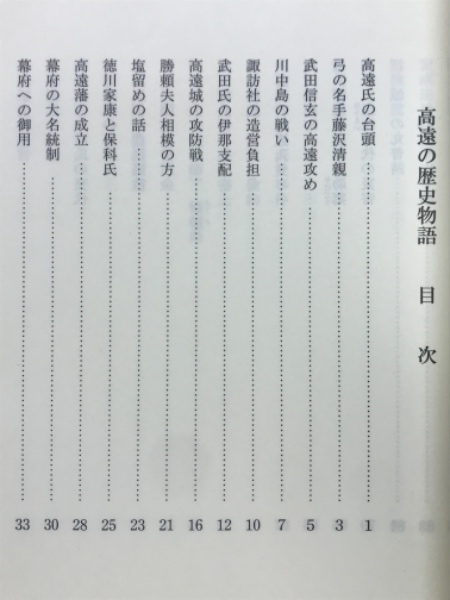 高遠の歴史物語　目　次
高遠氏の台頭……1
弓の名手藤沢清親……3
武田信玄の高遠攻め……5
川中島の戦い……7
諏訪社の造営負担……10
武田氏の伊那支配……12
高遠城の攻防戦……16
勝頼夫人相模の方……21
塩留めの話……23
徳川家康と保科氏……25
高遠藩の成立……28
幕府の大名統制……30
幕府への御用……33